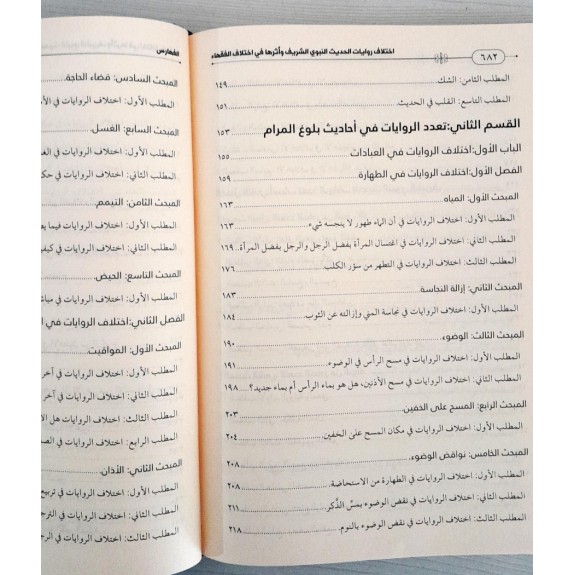 ٦٨٢ اختلاف روايات الحديث النبوي الشريف وأثرها في اختلاف الفقهاء
المطلب الثامن: الشك ١٤٩
المطلب التاسع: القلب في الحديث ١٥١
القسم الثاني:تعدد الروايات في أحاديث بلوغ المرام ١٥٣
الباب الأول:اختلاف الروايات في العبادات ١٥٥
الفصل الأول:اختلاف الروايات في الطهارة ١٥٩
المبحث الأول: المياه ١٦٣
المطلب الأول: اختلاف الروايات في أن الماء طهور لا ينجسه شيء ١٦٣
المطلب الثاني: اختلاف الروايات في اغتسال المرأة بفضل الرجل والرجل بفضل المرأة. ١٦٩
المطلب الثالث: اختلاف الروايات في التطهر من سؤر الكلب ١٧٦
المبحث الثاني: إزالة النجاسة ١٨٣
المطلب الأول: اختلاف الروايات في نجاسة المني وإزالته عن الثوب ١٨٤
المبحث الثالث: الوضوء ١٩٠
المطلب الأول: اختلاف الروايات في مسح الرأس في الوضوء ١٩١
المطلب الثاني: اختلاف الروايات في مسح الأذنين، هل هو بماء الرأس أم بماء جديد؟ ١٩٨
المبحث الرابع: المسح على الخفين ٢٠٣
المطلب الأول: اختلاف الروايات في مكان المسح على الخفين ٢٠٤
المبحث الخامس: نواقض الوضوء ٢٠٨
المطلب الأول: اختلاف الروايات في الطهارة من الاستحاضة ٢٠٨
المطلب الثاني: اختلاف الروايات في نقض الوضوء بمسّ الذَّكر ٢١١
المطلب الثالث: اختلاف الروايات في نقض الوضوء بالنوم ٢١٨
الفهارس
المبحث السادس: قضاء الحاجة
المطلب الأول: اختلاف الروايات في
المبحث السابع: الغسل
المطلب الأول: اختلاف الروايات في الغسل
المطلب الثاني: اختلاف الروايات في حكم
المبحث الثامن: التيمم
المطلب الأول: اختلاف الروايات فيما
المطلب الثاني: اختلاف الروايات في
المبحث التاسع: الحيض
المطلب الأول: اختلاف الروايات في
الفصل الثاني:اختلاف الروايات في
المبحث الأول: المواقيت
المطلب الأول: اختلاف الروايات في آخر
المطلب الثاني: اختلاف الروايات في آخر
المطلب الثالث: اختلاف الروايات هل
المطلب الرابع: اختلاف الروايات في
المبحث الثاني: الأذان
المطلب الأول: اختلاف الروايات في تربيع
المطلب الثاني: اختلاف الروايات في
المطلب الثالث: اختلاف الروايات في